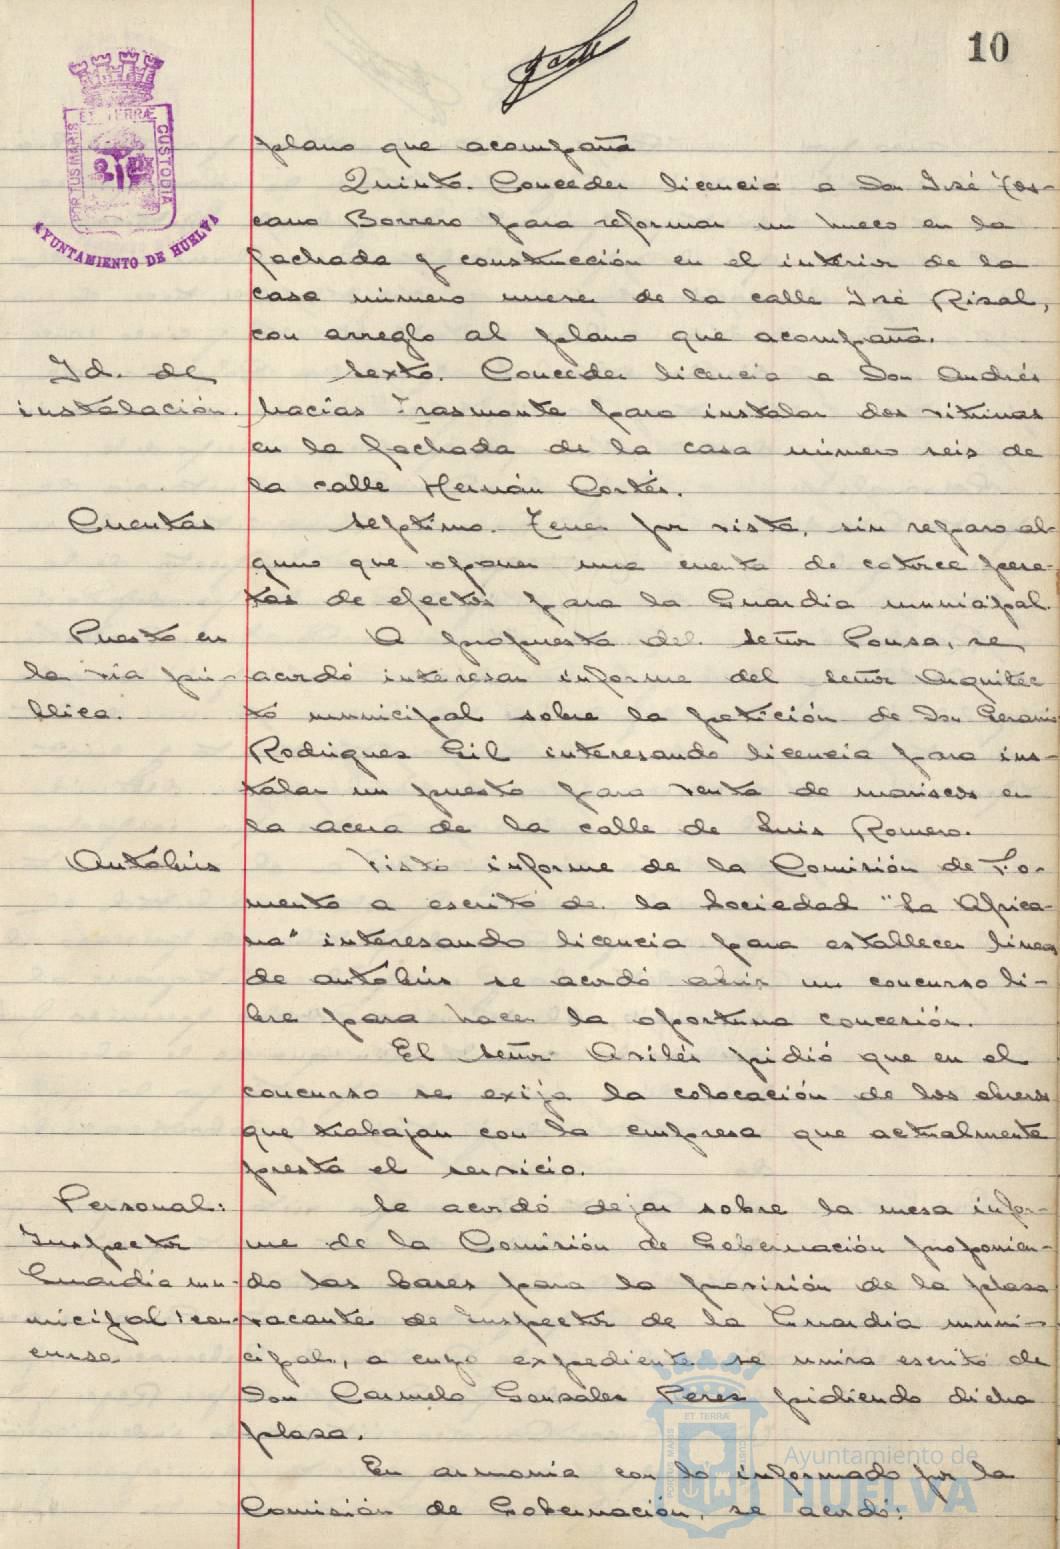 10
PORTUS MARIS ET TERRÆ CUSTODIA
AYUNTAMIENTO DE HUELVA
plano que acompaña
Quinto. Conceder licencia a Don José Tos-
cano Borrero para reformar un hueco en la
fachada y construcción en el interior de la
casa número nueve de la calle José Rizal,
con arreglo al plano que acompaña.
Id. de
instalación.
Sexto. Conceder licencia a Don Andrés
Macías Trasmonte para instalar dos vitrinas
en la fachada de la casa número seis de
la calle Hernán Cortés.
Cuentas
Septimo. Tener por vista, sin reparo al-
guno que oponer una cuenta de catorce pese-
tas de efectos para la Guardia municipal.
Puesto en
la vía pú-
blica.
A propuesta del señor Pousa, se
acordó interesar informe del señor Arquitec
to municipal sobre la petición de Don
Rodriguez Gil interesando licencia para ins-
talar un puesto para venta de mariscos en
la acera de la calle de Luis Romero.
Autobús
Visto informe de la Comisión de Fo-
mento a escrito de la Sociedad "La Africa-
na" interesando licencia para establecer lineas
de autobús se acordó abrir un concurso li-
bre para hacer la oportuna concesión.
El señor Avilés pidió que en el
concurso se exija la colocación de los obreros
que trabajan con la empresa que actualmente
presta el servicio.
Personal:
Inspector
Guardia mu-
nicipal
Se acordó dejar sobre la mesa infor-
me de la Comisión de Gobernación proponien-
do las bases para la provisión de la plaza
vacante de Inspector de la Guardia muni-
cipal, a cuyo expediente se unira escrito de
Don Carmelo González Perez pidiendo dicha
plaza.
En armonia con lo informado por la
Comisión de Gobernación, se acordó:
Ayuntamiento de
HUELVA